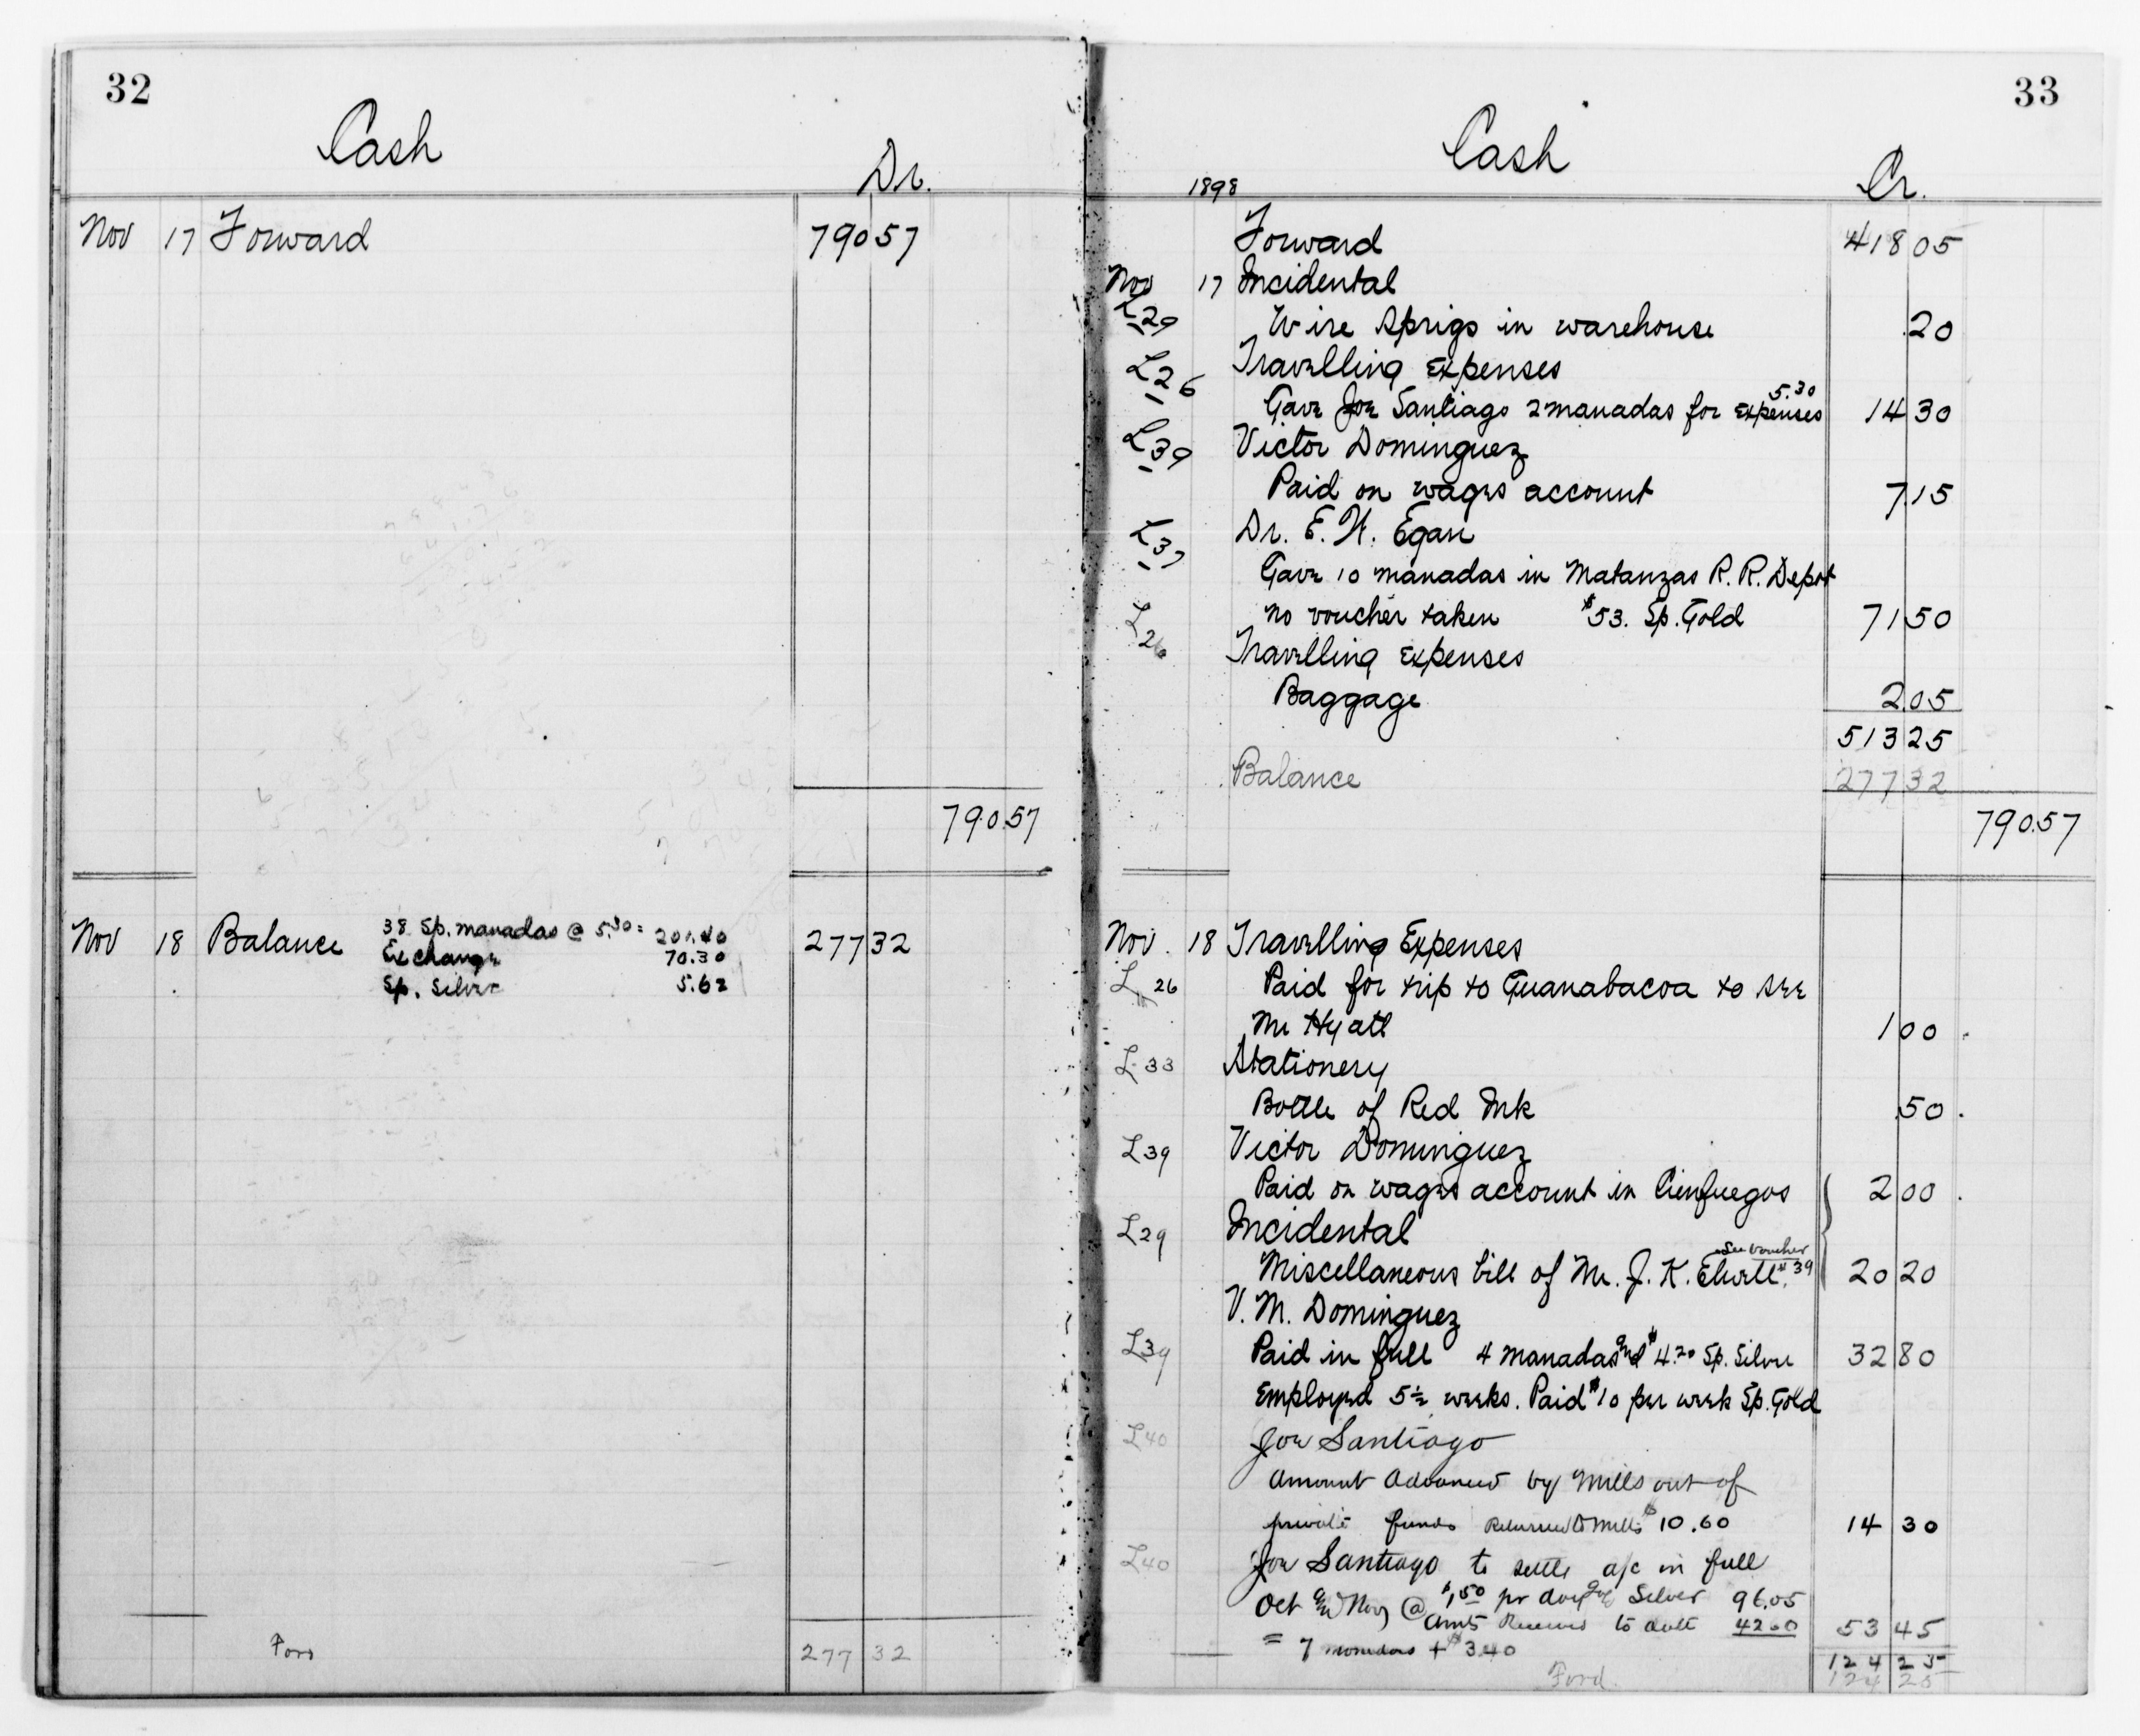 32
Cash
Dr.
Nov 17 Forward 790 57
790.57
Nov 18 Balance 38 Sp. manadas @ 5.30 = 201.40 277 32
Exchange 70.30
Sp. Silver 5.62
Forw 277 32
33
Cash
1898 Cr.
Forward 418 05
Nov 17 Incidental
L29 Wire Sprigs in warehouse .20
L26 Travelling Expenses
Gave Joe Santiago 2 manadas for expenses 5.30 14 30
L39 Victor Dominguez
Paid on wages account 7.15
L37 Dr. E. W. Egan
Gave 10 manadas in Matanzas R. R. Depot
no voucher taken $53. Sp. Gold 71 50
L26 Travelling Expenses
Baggage 2.05
513 25
Balance 277 32
790.57
Nov. 18 Travelling Expenses
L26 Paid for trip to Guanabacoa to see
Mr Hyatt 1 00
L33 Stationery
Bottle of Red Ink .50
L39 Victor Dominguez
Paid on wages account in Cienfuegos 2 00
L29 Incidental
Miscellaneous bill of Mr. J. K. Elwell. See Voucher #39 20 20
V. M. Dominguez
L39 Paid in full 4 manadas and $4.20 Sp. Silver 32 80
Employed 5½ weeks. Paid $10 per week Sp. Gold
L40 Joe Santiago
Amount Advanced by Mills out of
private funds Returned to Mills $10.60 14 30
L40 Joe Santiago to settle a/c in full
Oct and Nov @ $1.50 pr day Silver 96.05
Amts Received to date 42.60 53 45
= 7 manadas + $3.40
124 25
Ford. 124 25